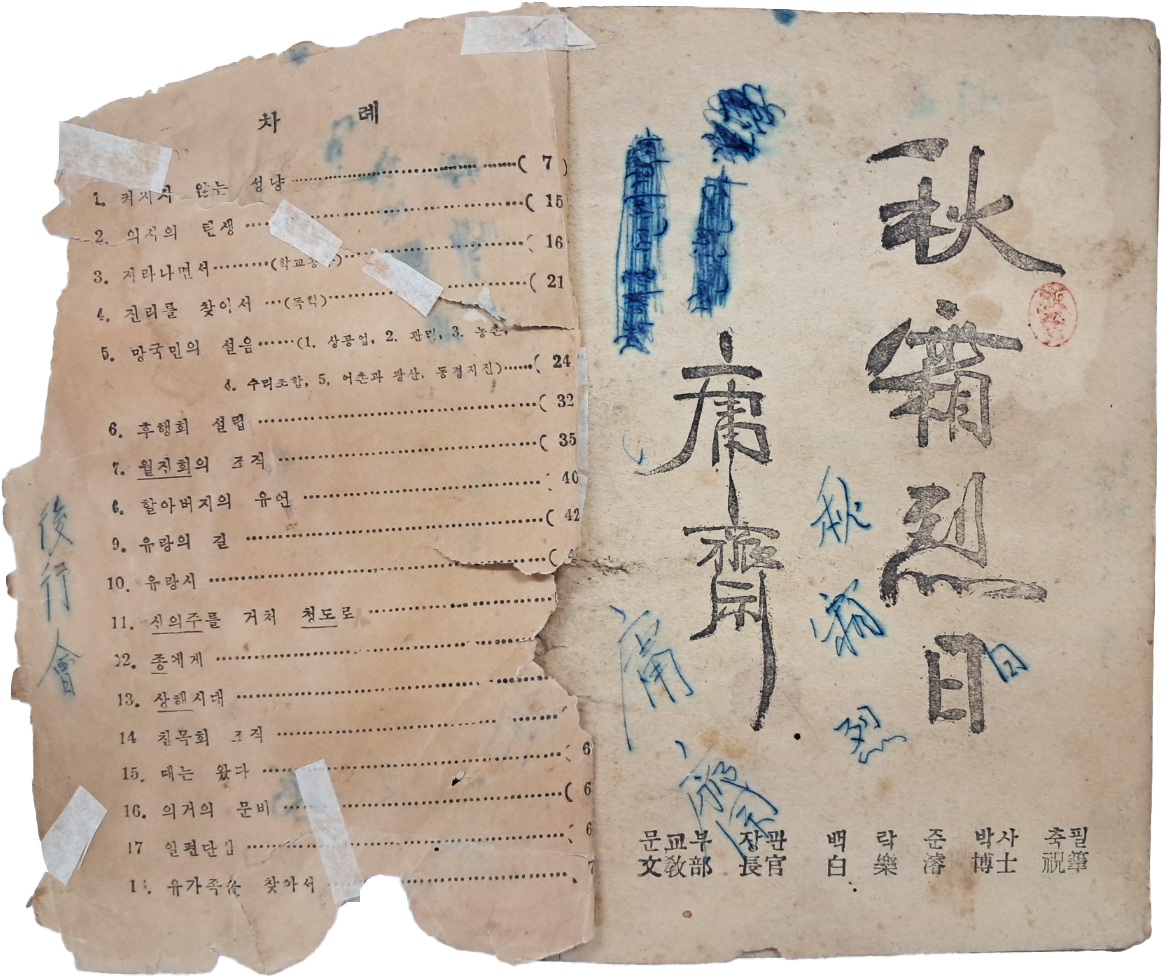 차 례
1. 커지지 않는 성냥 ( 7 )
2. 의사의 탄생 ( 15
3. 자라나면서 (학교공부) ( 16
4. 진리를 찾아서 (독학) ( 21
5. 망국민의 설음 (1. 상공업, 2. 관리, 3. 농촌,
4. 수리조합, 5, 어촌과 광산, 동경지진) ( 24
6. 후행회 설립 ( 32
7. 월진회의 조직 ( 35
8. 할아버지의 유언 40
9. 유랑의 길 ( 42
10. 유랑시 (
11. 신의주를 거쳐 청도로
12. 종에게
13. 상해시대
14 친목회 조직
15. 때는 왔다 6
16. 의거의 문비 ( 6
17 일편단심 ( 6
18. 유가족을 찾아서 7
後行會
秋霜烈日
庸齋
秋霜烈
日
庸齋
문교부 장관 백락준 박사 축필
文敎部 長官 白樂濬 博士 祝筆